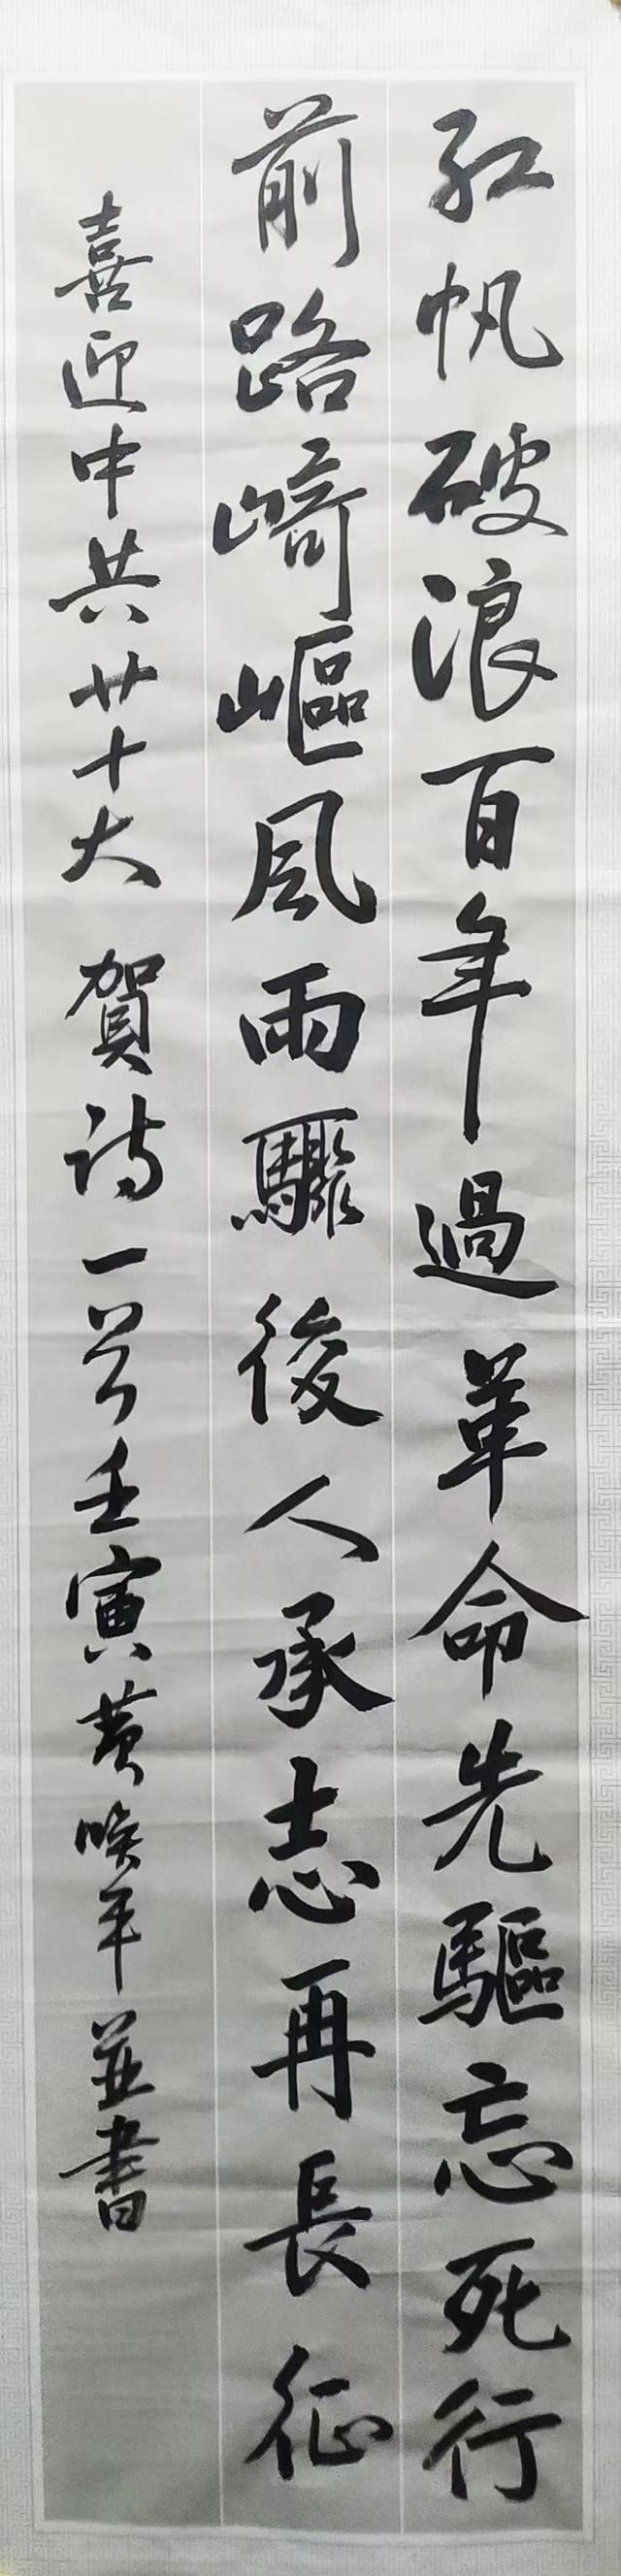 红帆破浪百年過革命先驅忘死行
前路崎嶇風雨驟後人承志再長征
喜迎中共廿十大 賀诗一首壬寅黄唤年並書